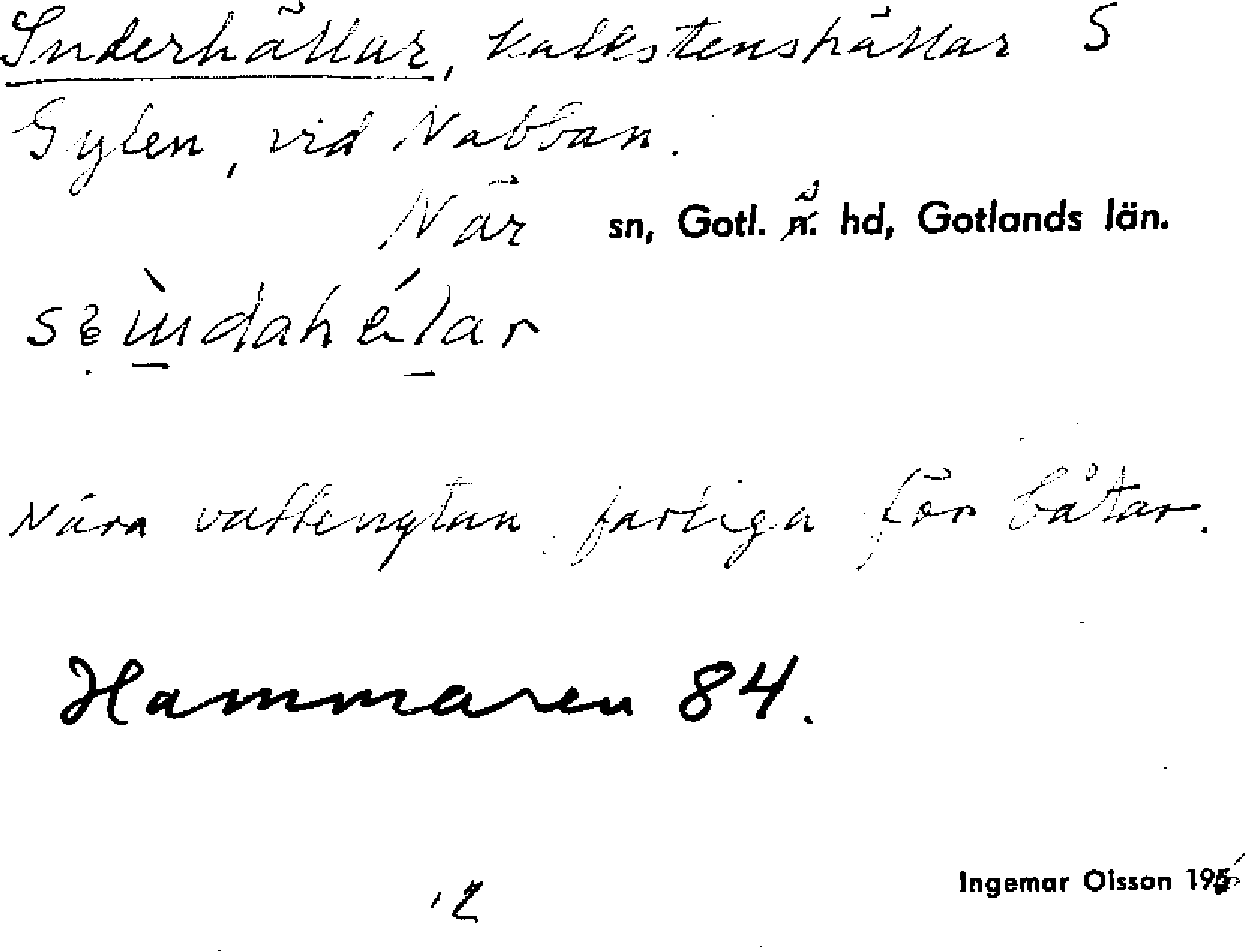 Snderhällar, kalkstenshällar S
Gylen, vid Nabban.
När sn, Gotl. s. hd, Gotlands län.
Nära vattenytan, farliga för båtar.
Hammaren 84.
12
Ingemar Olsson 195